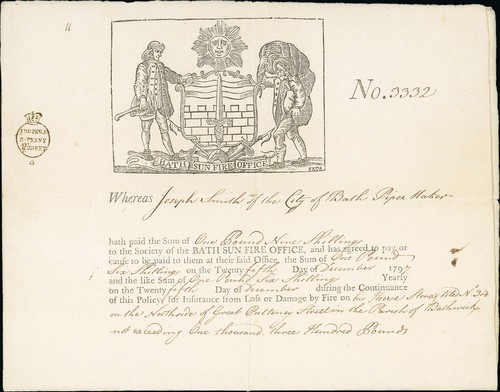 11
No. 3332
BATH SUN FIRE OFFICE
Whereas Joseph Smith of the City of Bath Pipe Maker
hath paid the Sum of One Pound Nine Shillings
to the Society of the BATH SUN FIRE OFFICE, and has agreed to pay or
cause to be paid to them at their said Office, the Sum of One Pound
Six Shillings on the Twenty fifth Day of December 1797
and the like Sum of One Pound Six Shillings Yearly
on the Twenty fifth Day of December during the Continuance
of this Policy, for Insurance from Loss or Damage by Fire on his House No. 34
on the Northside of Great Pulteney Street in the Parish of Bathwick
not exceeding One thousand three Hundred Pounds